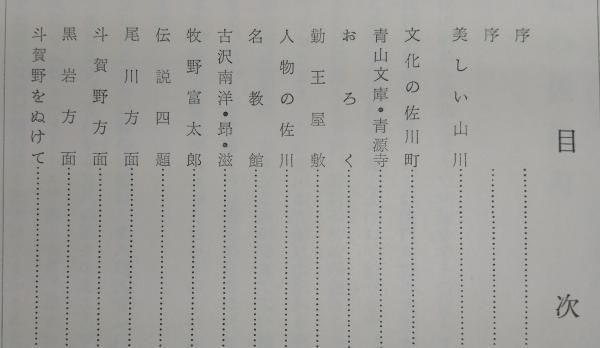 目次
序
序
美しい山川
文化の佐川町
青山文庫・青源寺
おろく
勤王屋敷
人物の佐川
名教館
古沢南洋・昂・滋
牧野富太郎
伝説四題
尾川方面
斗賀野方面
黒岩方面
斗賀野をぬけて